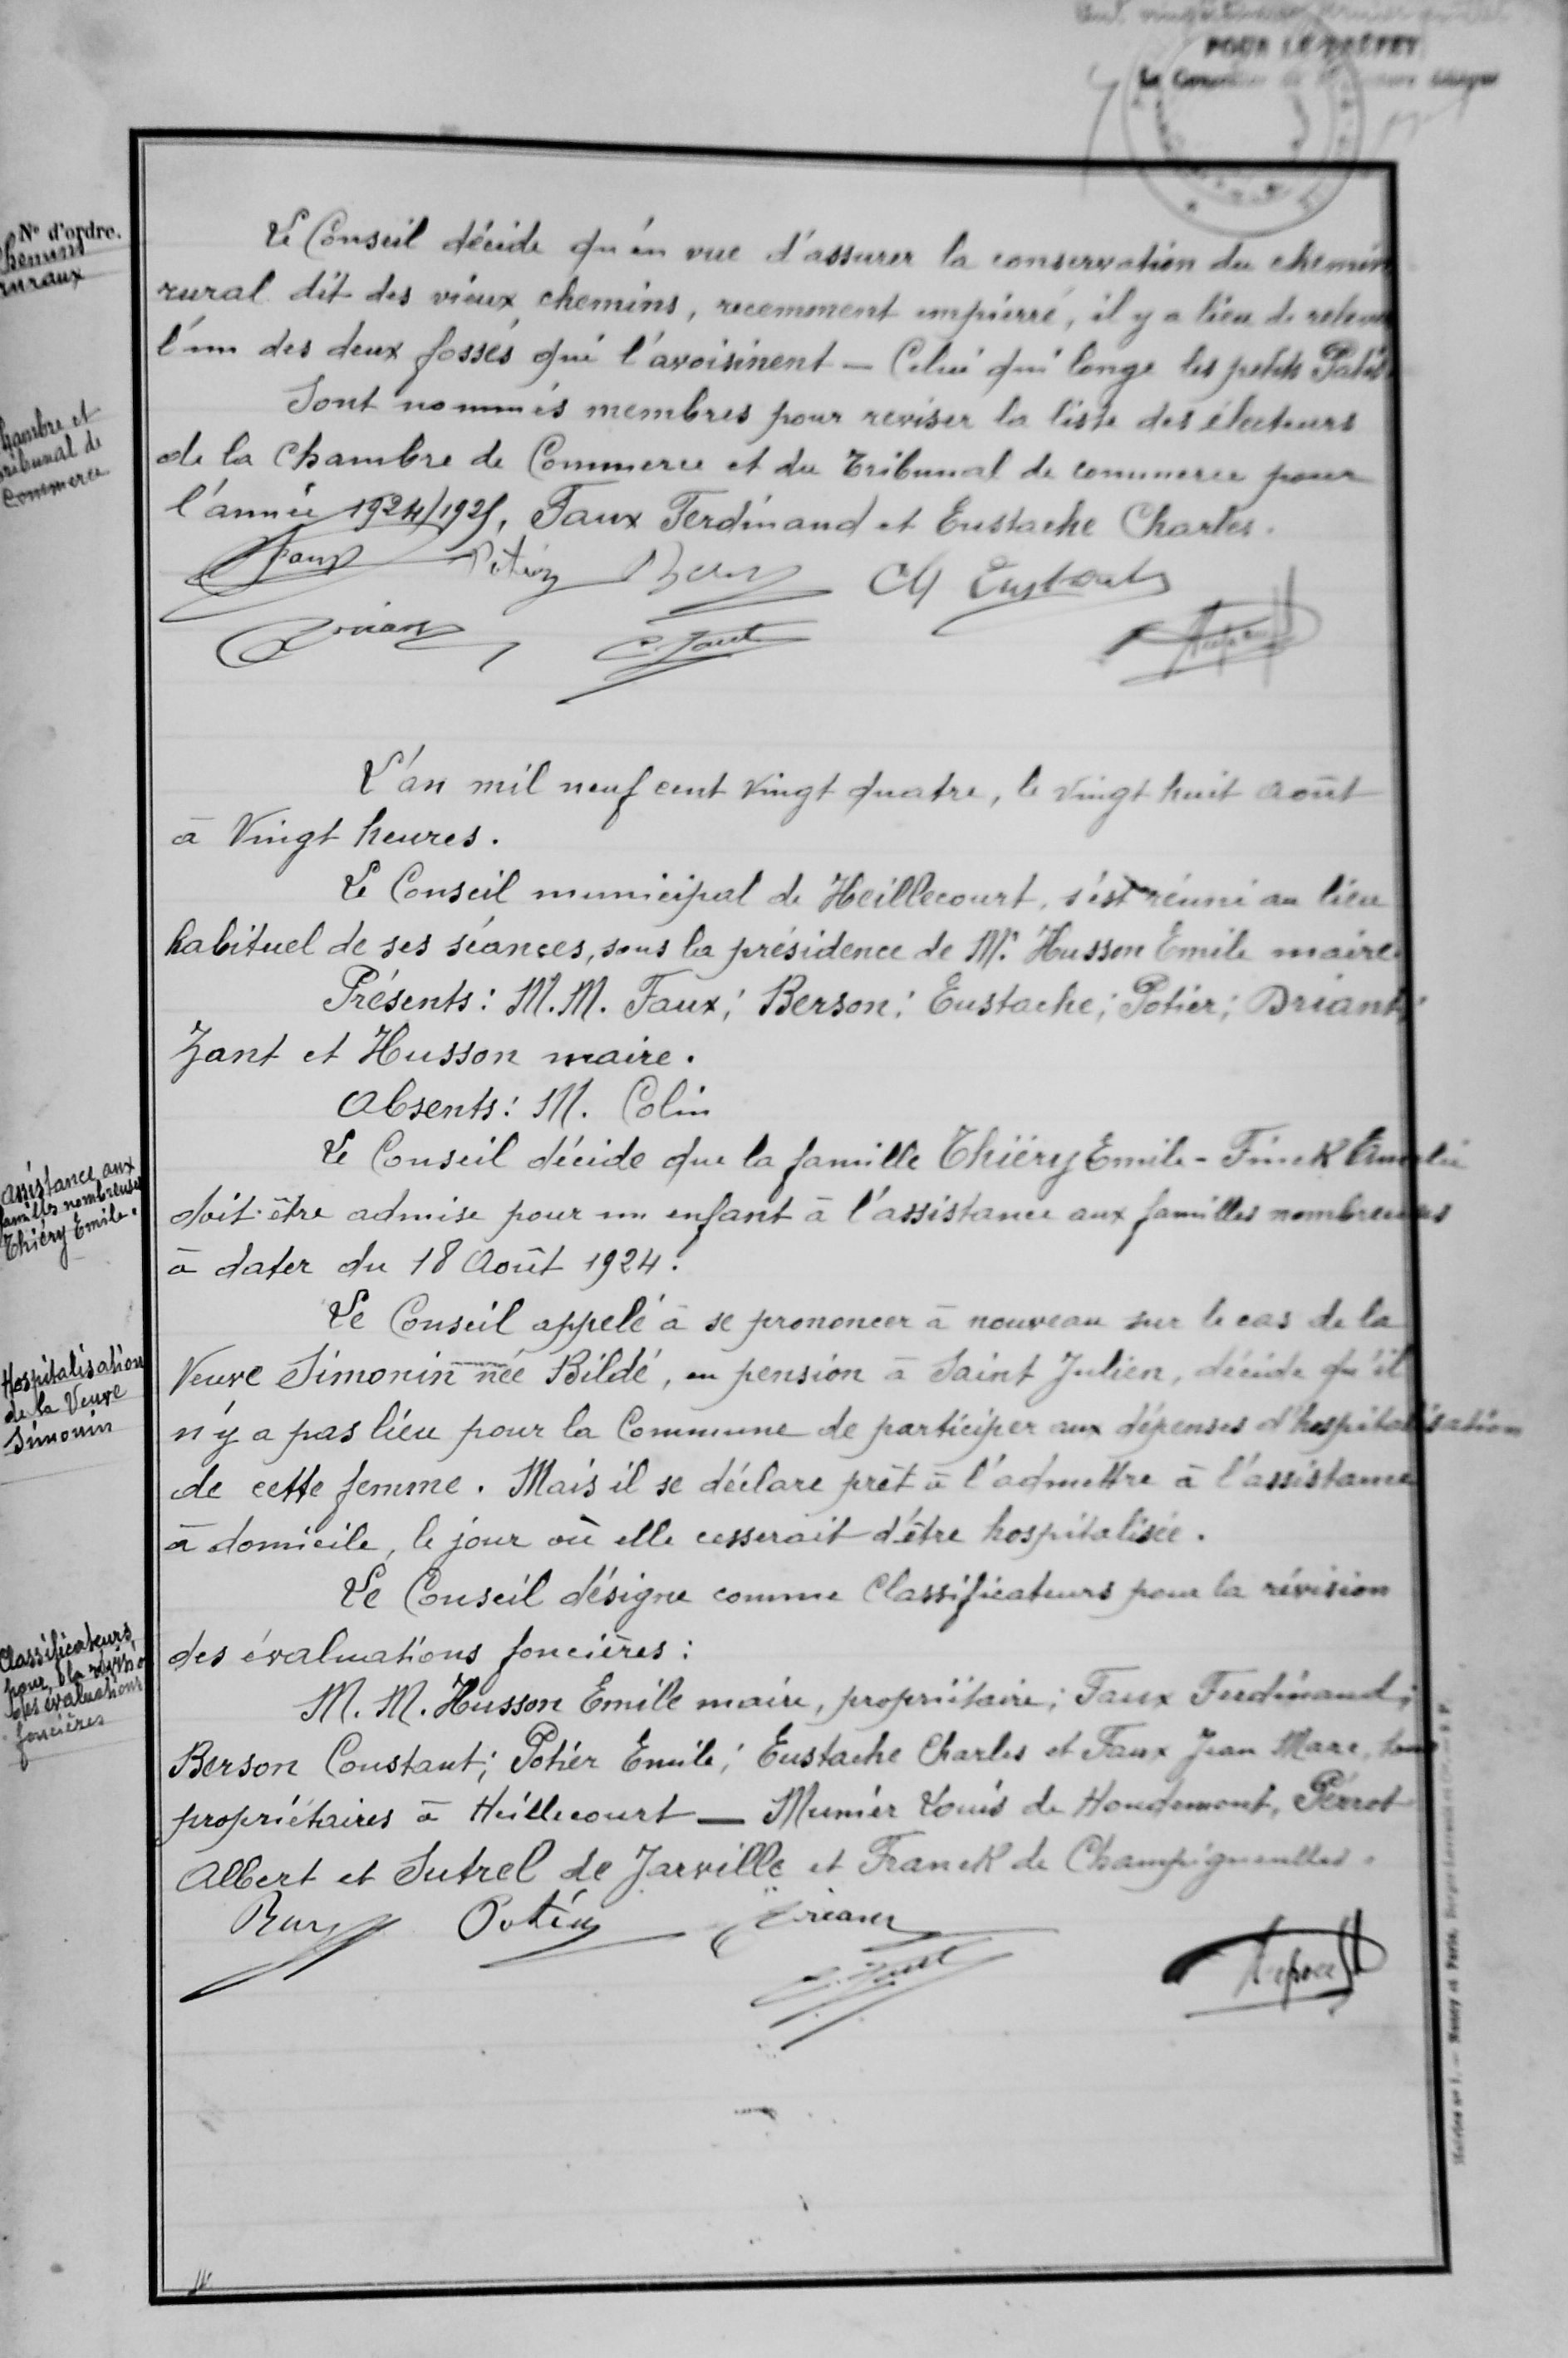 POUR LE PRÉFET
N° d'ordre.
Chemins
ruraux
Le Conseil décide qu'en vue d'assurer la conservation du chemin
rural dit des vieux chemins, recemment empierré, il y a lieu de relever
l'un des deux fossés qui l'avoisinent — Celui qui longe les petits Patis.
Chambre et
Tribunal de
Commerce
Sont nommés membres pour reviser la liste des électeurs
de la Chambre de Commerce et du Tribunal de commerce pour
l'année 1924/1925, Faux Ferdinand et Eustache Charles.
Faux Potier Ch Eustache
Briant C. Zant
L'an mil neuf cent vingt quatre, le vingt huit Août
à Vingt heures.
Le Conseil municipal de Heillecourt, s'est réuni au lieu
habituel de ses séances, sous la présidence de Mr. Husson Emile maire.
Présents: M.M. Faux; Berson; Eustache; Potier; Briant;
Zant et Husson maire.
Absents: M. Colin
Assistance aux
familles nombreuses
Thiéry Emile.
Le Conseil décide que la famille Thiéry Emile - Finck Amélie
doit être admise pour un enfant à l'assistance aux familles nombreuses
à dater du 18 Août 1924.
Hospitalisation
de la Veuve
Simonin
Le Conseil appelé à se prononcer à nouveau sur le cas de la
Veuve Simonin née Bildé, en pension à Saint Julien, décide qu'il
n'y a pas lieu pour la Commune de participer aux dépenses d'hospitalisation
de cette femme. Mais il se déclare prêt à l'admettre à l'assistance
à domicile, le jour où elle cesserait d'être hospitalisée.
Classificateurs
pour la révision
des évaluations
foncières
Le Conseil désigne comme Classificateurs pour la révision
des évaluations foncières:
M.M. Husson Emile maire, propriétaire; Faux Ferdinand;
Berson Constant; Potier Emile; Eustache Charles et Faux Jean Marc, tous
propriétaires à Heillecourt — Munier Louis de Houdemont, Pérrot
Albert et Sutrel de Jarville et Franck de Champigneulles.
Potier Briant
C. Zant
Nancy et Paris.